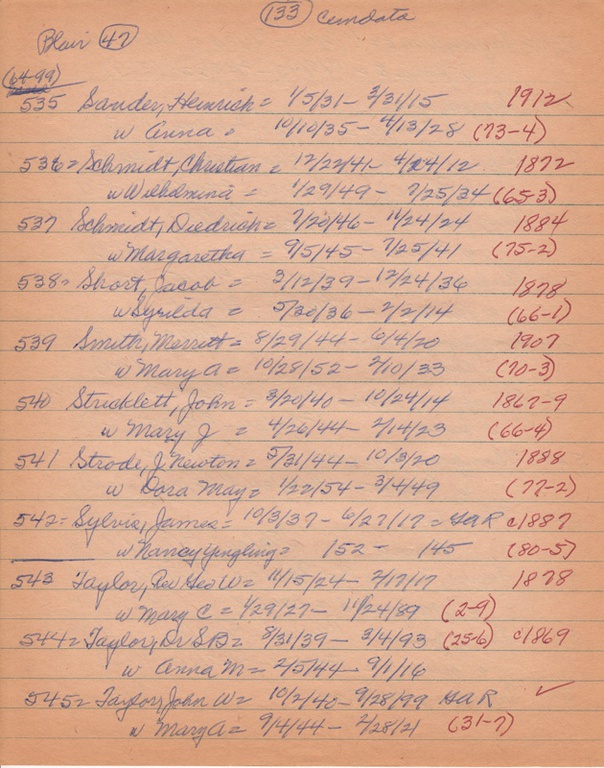 133 cemdata
Blair 47
(64-99)
535 Sander, Heinrich = 1/5/31 - 3/31/15 1912
w Anna = 10/10/35 - 4/13/28 (73-4)
536 = Schmidt, Christian = 12/22/41 - 4/24/12 1872
w Wilhelmina = 1/29/49 - 7/25/34 (65-3)
537 Schmidt, Diedrich = 7/20/46 - 11/24/24 1884
w Margaretha = 9/5/45 - 7/25/41 (75-2)
538 = Short, Jacob = 3/12/39 - 12/24/36 1878
w Syrilda = 5/30/36 - 2/2/14 (66-1)
539 Smith, Merritt = 8/29/44 - 6/4/20 1907
w Mary A = 10/28/52 - 2/10/33 (70-3)
540 Stricklett, John = 3/20/40 - 10/24/14 1867-9
w Mary J = 4/26/44 - 2/14/23 (66-4)
541 Strode, J Newton = 5/31/44 - 10/3/20 1888
w Dora May = 1/22/54 - 3/4/49 (77-2)
542 = Sylvis, James = 10/3/37 - 6/27/17 = GAR c1887
w Nancy Yingling = 152 - 145 (80-5)
543 Taylor, Rev Geo W = 11/15/24 - 2/17/17 1878
w Mary C = 1/29/27 - 11/24/89 (2-9)
544 = Taylor, Dr S B = 8/31/39 - 3/4/93 (25-6) c1869
w Anna M = 2/5/44 - 9/1/16
545 = Taylor, John W = 10/2/40 - 9/28/99 GAR ✓
w Mary A = 9/4/44 - 2/28/21 (31-7)